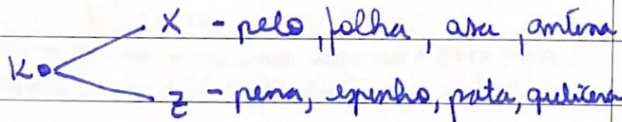 X - pelo, folha, asa, antena
Ko
Z - pena, espinho, pata, quelícera